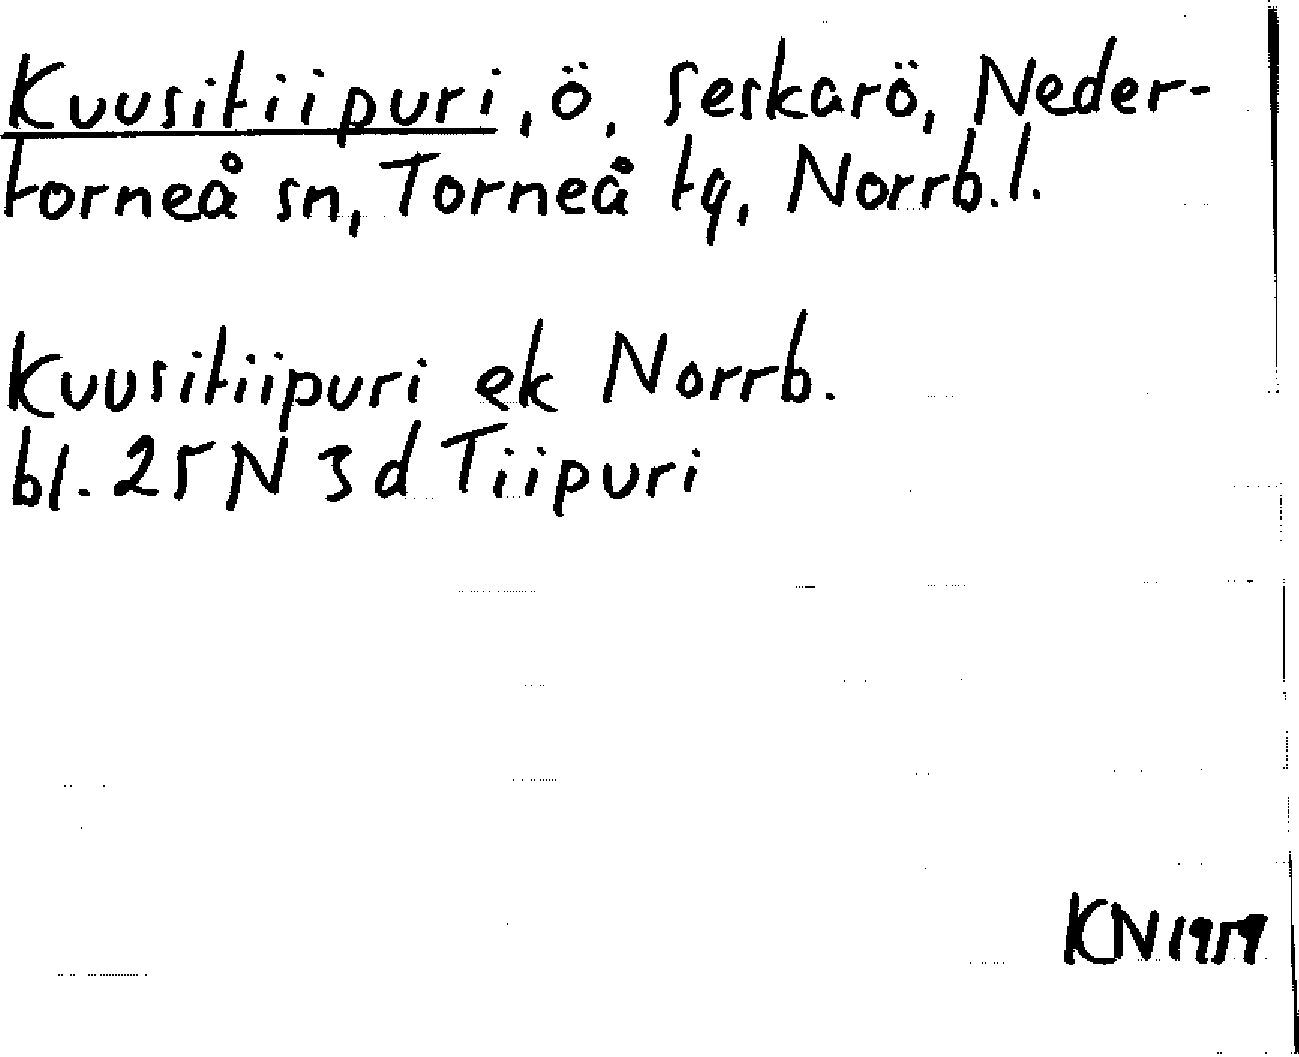 Kuusitiipuri, ö, Seskarö, Neder-
torneå sn, Torneå tg, Norrb.l.
Kuusitiipuri ek Norrb.
bl. 25 N 3 d Tiipuri
KN 1959